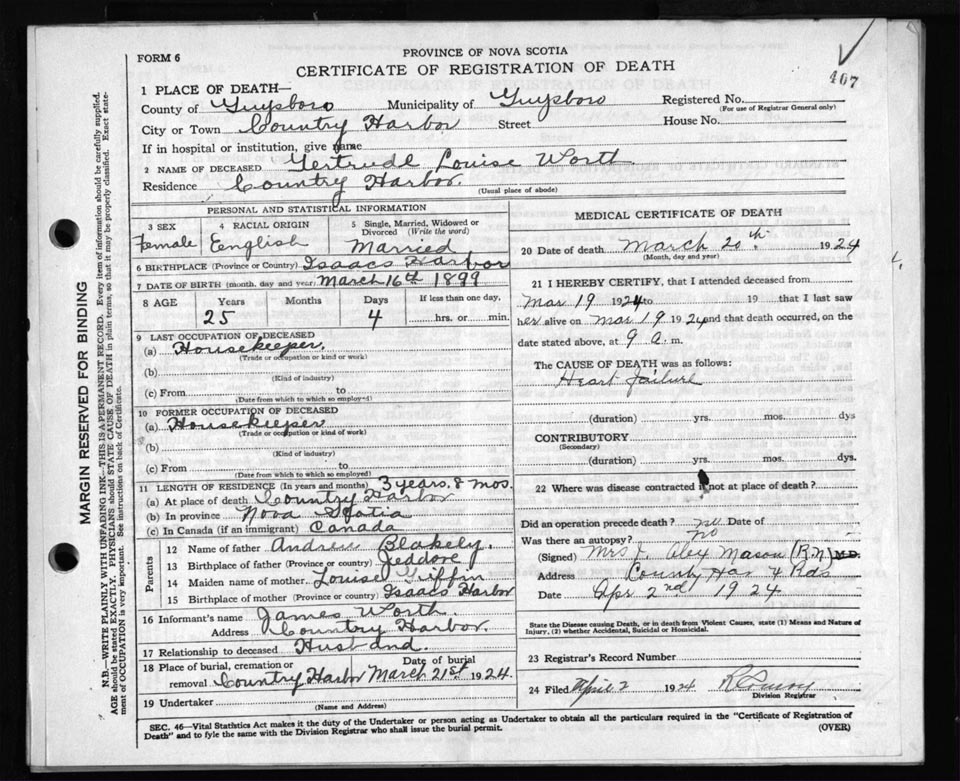 PROVINCE OF NOVA SCOTIA
FORM 6
CERTIFICATE OF REGISTRATION OF DEATH
407
1 PLACE OF DEATH—
County of Guysboro Municipality of Guysboro Registered No.
(For use of Registrar General only)
City or Town Country Harbor Street House No.
If in hospital or institution, give name
2 NAME OF DECEASED Gertrude Louise Worth
Residence Country Harbor.
(Usual place of abode)
PERSONAL AND STATISTICAL INFORMATION
3 SEX 4 RACIAL ORIGIN 5 Single, Married, Widowed or Divorced (Write the word)
Female English Married
6 BIRTHPLACE (Province or Country) Isaacs Harbor
7 DATE OF BIRTH (month, day and year) March 16th 1899
8 AGE Years Months Days If less than one day,
25 4 hrs. or min.
9 LAST OCCUPATION OF DECEASED
(a) Housekeeper.
(Trade or occupation or kind of work)
(b)
(Kind of industry)
(c) From to
(Date from which to which so employed)
10 FORMER OCCUPATION OF DECEASED
(a) Housekeeper
(Trade or occupation or kind of work)
(b)
(Kind of industry)
(c) From to
(Date from which to which so employed)
11 LENGTH OF RESIDENCE (In years and months) 3 years. 8 mos.
(a) At place of death Country Harbor
(b) In province Nova Scotia
(c) In Canada (if an immigrant) Canada
Parents
12 Name of father Andrew Blakely.
13 Birthplace of father (Province or country) Jeddore
14 Maiden name of mother Louise Griffin
15 Birthplace of mother (Province or country) Isaacs Harbor
16 Informant's name James Worth.
Address Country Harbor.
17 Relationship to deceased Husband.
18 Place of burial, cremation or removal Country Harbor Date of burial March 21st 1924.
19 Undertaker
(Name and Address)
MEDICAL CERTIFICATE OF DEATH
20 Date of death March 20th 1924
(Month, day and year)
21 I HEREBY CERTIFY, that I attended deceased from
Mar 19 1924 to 19 that I last saw
her alive on Mar 19 1924 and that death occurred, on the
date stated above, at 9 a. m.
The CAUSE OF DEATH was as follows:
Heart failure
(duration) yrs. mos. dys
CONTRIBUTORY
(Secondary)
(duration) yrs. mos. dys
22 Where was disease contracted if not at place of death?
Did an operation precede death? no Date of
Was there an autopsy? no
(Signed) Mrs J. Alex Mason (R.N) M.D.
Address County Har X Rds
Date Apr 2nd 1924
State the Disease causing Death, or in death from Violent Causes, state (1) Means and Nature of Injury, (2) whether Accidental, Suicidal or Homicidal.
23 Registrar's Record Number
24 Filed April 2 1924
Division Registrar
SEC. 46—Vital Statistics Act makes it the duty of the Undertaker or person acting as Undertaker to obtain all the particulars required in the "Certificate of Registration of
Death" and to fyle the same with the Division Registrar who shall issue the burial permit. (OVER)
MARGIN RESERVED FOR BINDING
N.B.—WRITE PLAINLY WITH UNFADING INK—THIS IS A PERMANENT RECORD. Every item of information should be carefully supplied.
AGE should be stated EXACTLY. PHYSICIANS should STATE CAUSE OF DEATH in plain terms, so that it may be properly classified. Exact state-
ment of OCCUPATION is very important. See instructions on back of Certificate.